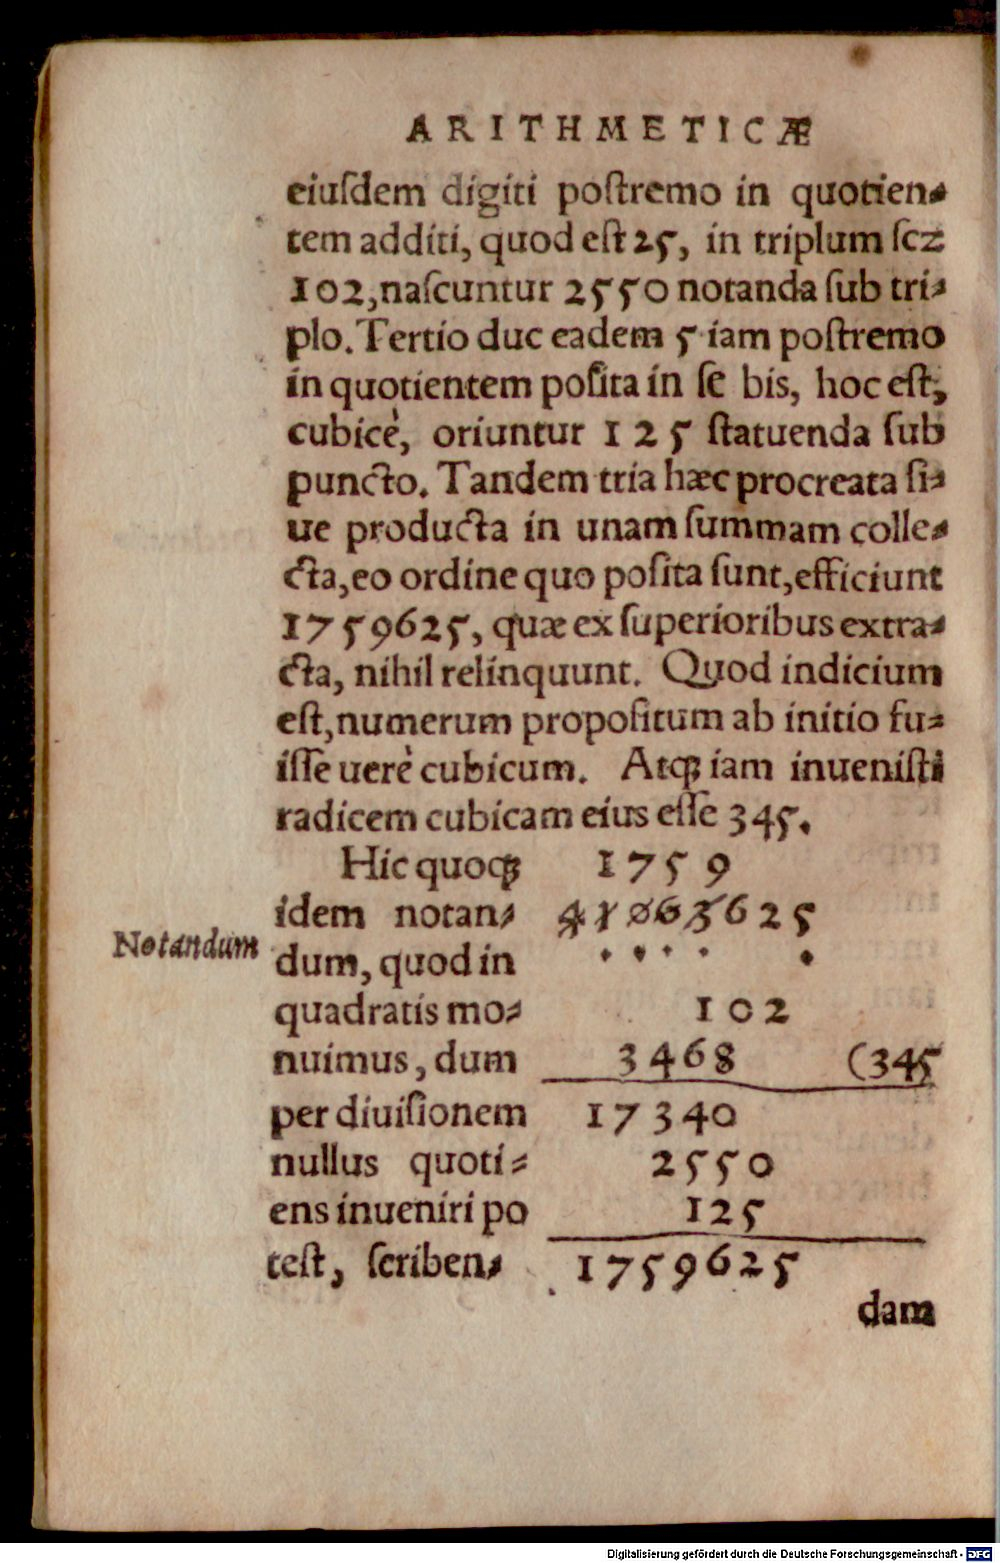 ARITHMETICÆ
eiuſdem digiti poſtremo in quotien⸗
tem additi, quod eſt 25, in triplum ſcz
102, naſcuntur 2550 notanda ſub tri⸗
plo. Tertio duc eadem 5 iam poſtremo
in quotientem poſita in ſe bis, hoc eſt,
cubicè, oriuntur 125 ſtatuenda ſub
puncto. Tandem tria hæc procreata ſi⸗
ue producta in unam ſummam colle⸗
cta, eo ordine quo poſita sunt, efficiunt
1759625, quæ ex ſuperioribus extra⸗
cta, nihil relinquunt. Quod indicium
eſt, numerum propoſitum ab initio fu⸗
iſſe uerè cubicum. Atqꝫ iam inueniſti
radicem cubicam eius eſſe 345.
Hic quoqꝫ 1759
idem notan⸗ 41063625
Notandum dum, quod in
quadratis mo⸗ 102
nuimus, dum 3468 (345
per diuiſionem 17340
nullus quoti⸗ 2550
ens inueniri po 125
teſt, ſcriben⸗ 1759625
dam
Digitalisierung gefördert durch die Deutsche Forschungsgemeinschaft - DFG